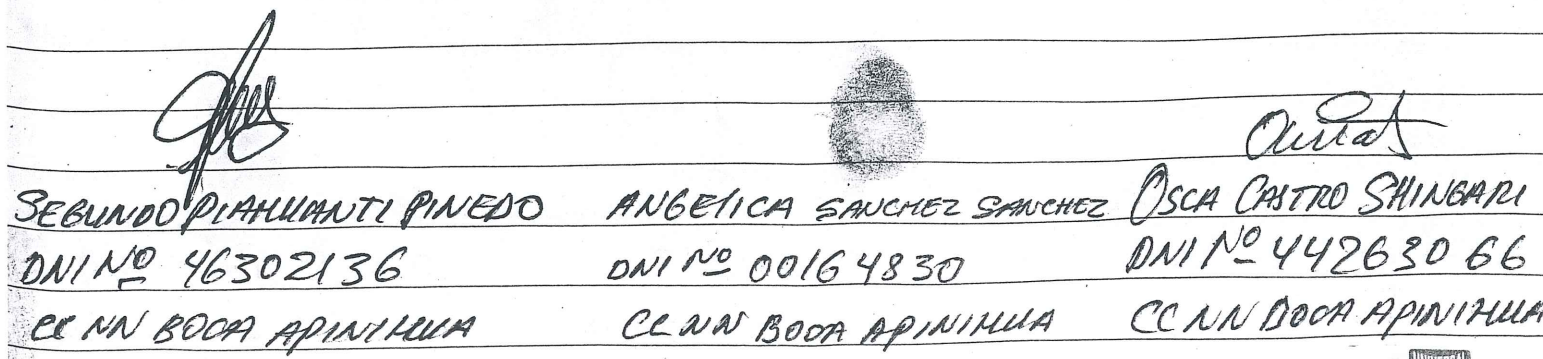 SEGUNDO PIAHUANTI PINEDO
DNI Nº 46302136
CC NN BOCA APINIHUA
ANGELICA SANCHEZ SANCHEZ
DNI Nº 00164830
CC NN BOCA APINIHUA
OSCA CASTRO SHINGARI
DNI Nº 44263066
CC NN BOCA APINIHUA